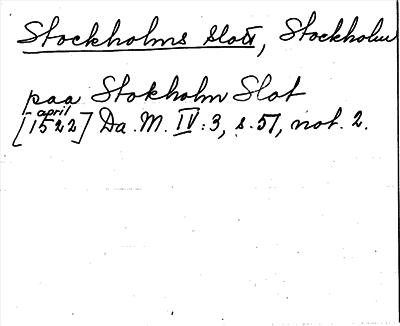 Stockholms slott, Stockholm
paa Stokholm Slot
april
[1522] Da. M. IV: 3, s. 57, not. 2.